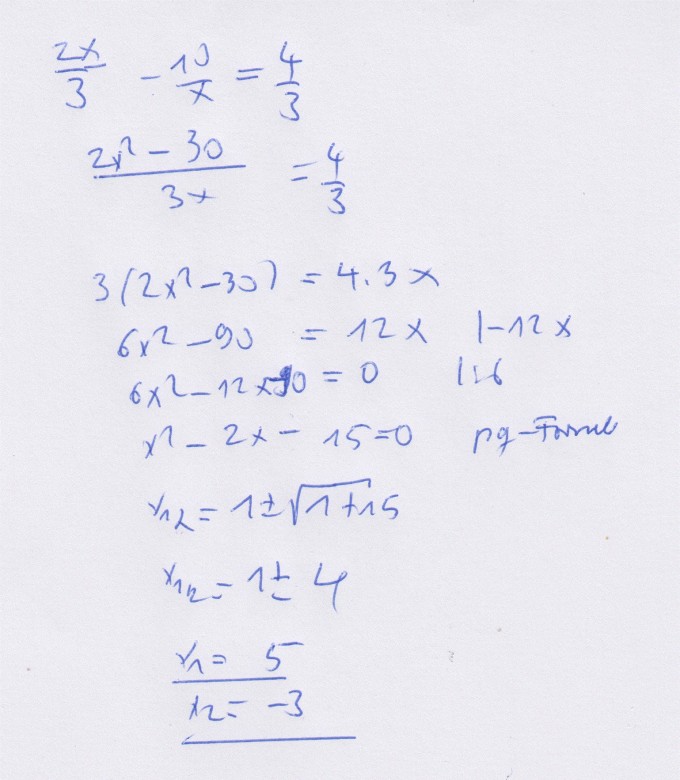 2x/3 - 10/x = 4/3
(2x² - 30)/(3x) = 4/3
3(2x² - 30) = 4·3x
6x² - 90 = 12x |-12x
6x² - 12x - 90 = 0 |:6
x² - 2x - 15 = 0 pq-Formel
x₁,₂ = 1 ± √(1+15)
x₁,₂ = 1 ± 4
x₁ = 5
x₂ = -3